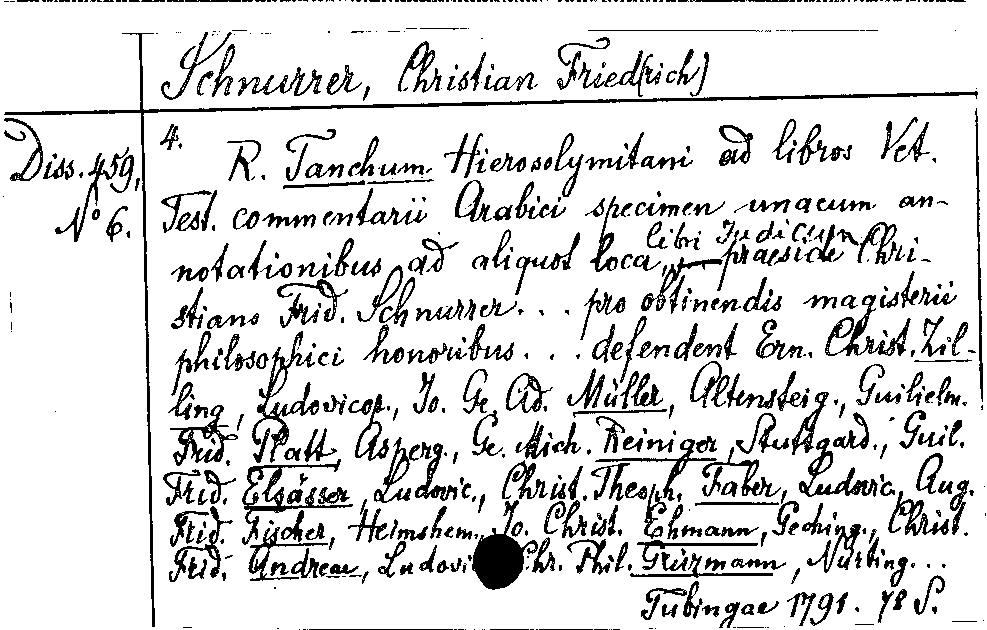 Schnurrer, Christian Fried(rich)
Diss. 459,
N° 6.
4.
R. Tanchum Hierosolymitani ad libros Vet.
Test. commentarii Arabici specimen unacum an-
notationibus ad aliquot loca libri Judicum, praeside Chri-
stiano Frid. Schnurrer . . . pro obtinendis magisterii
philosophici honoribus . . . defendent Ern. Christ. Zil-
ling, Ludovicop., Jo. Ge. Ad. Müller, Altensteig., Guilielm.
Frid. Platt, Asperg., Ge. Mich. Reiniger, Stuttgard., Guil.
Frid. Elsässer, Ludovic., Christ. Theoph. Faber, Ludovic., Aug.
Frid. Fischer, Heimshem., Jo. Christ. Ehmann, Geching., Christ.
Frid. Andreae, Ludovi Chr. Phil. Nürting...
Tubingae 1791. 78 S.